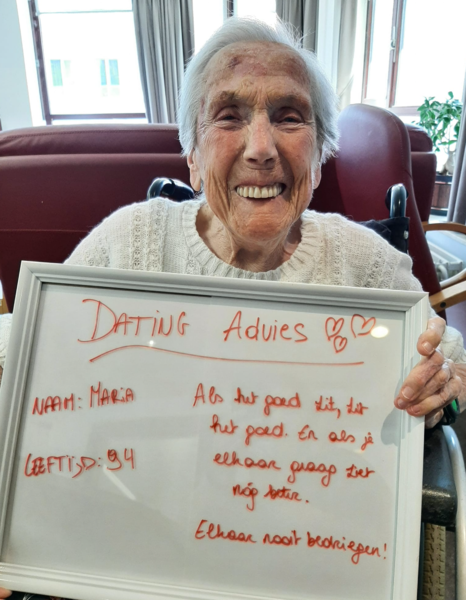 DATING Advies
NAAM: MARIA
LEEFTIJD: 94
Als het goed zit, zit
het goed. En als je
elkaar graag ziet
nóg beter.
Elkaar nooit bedriegen!